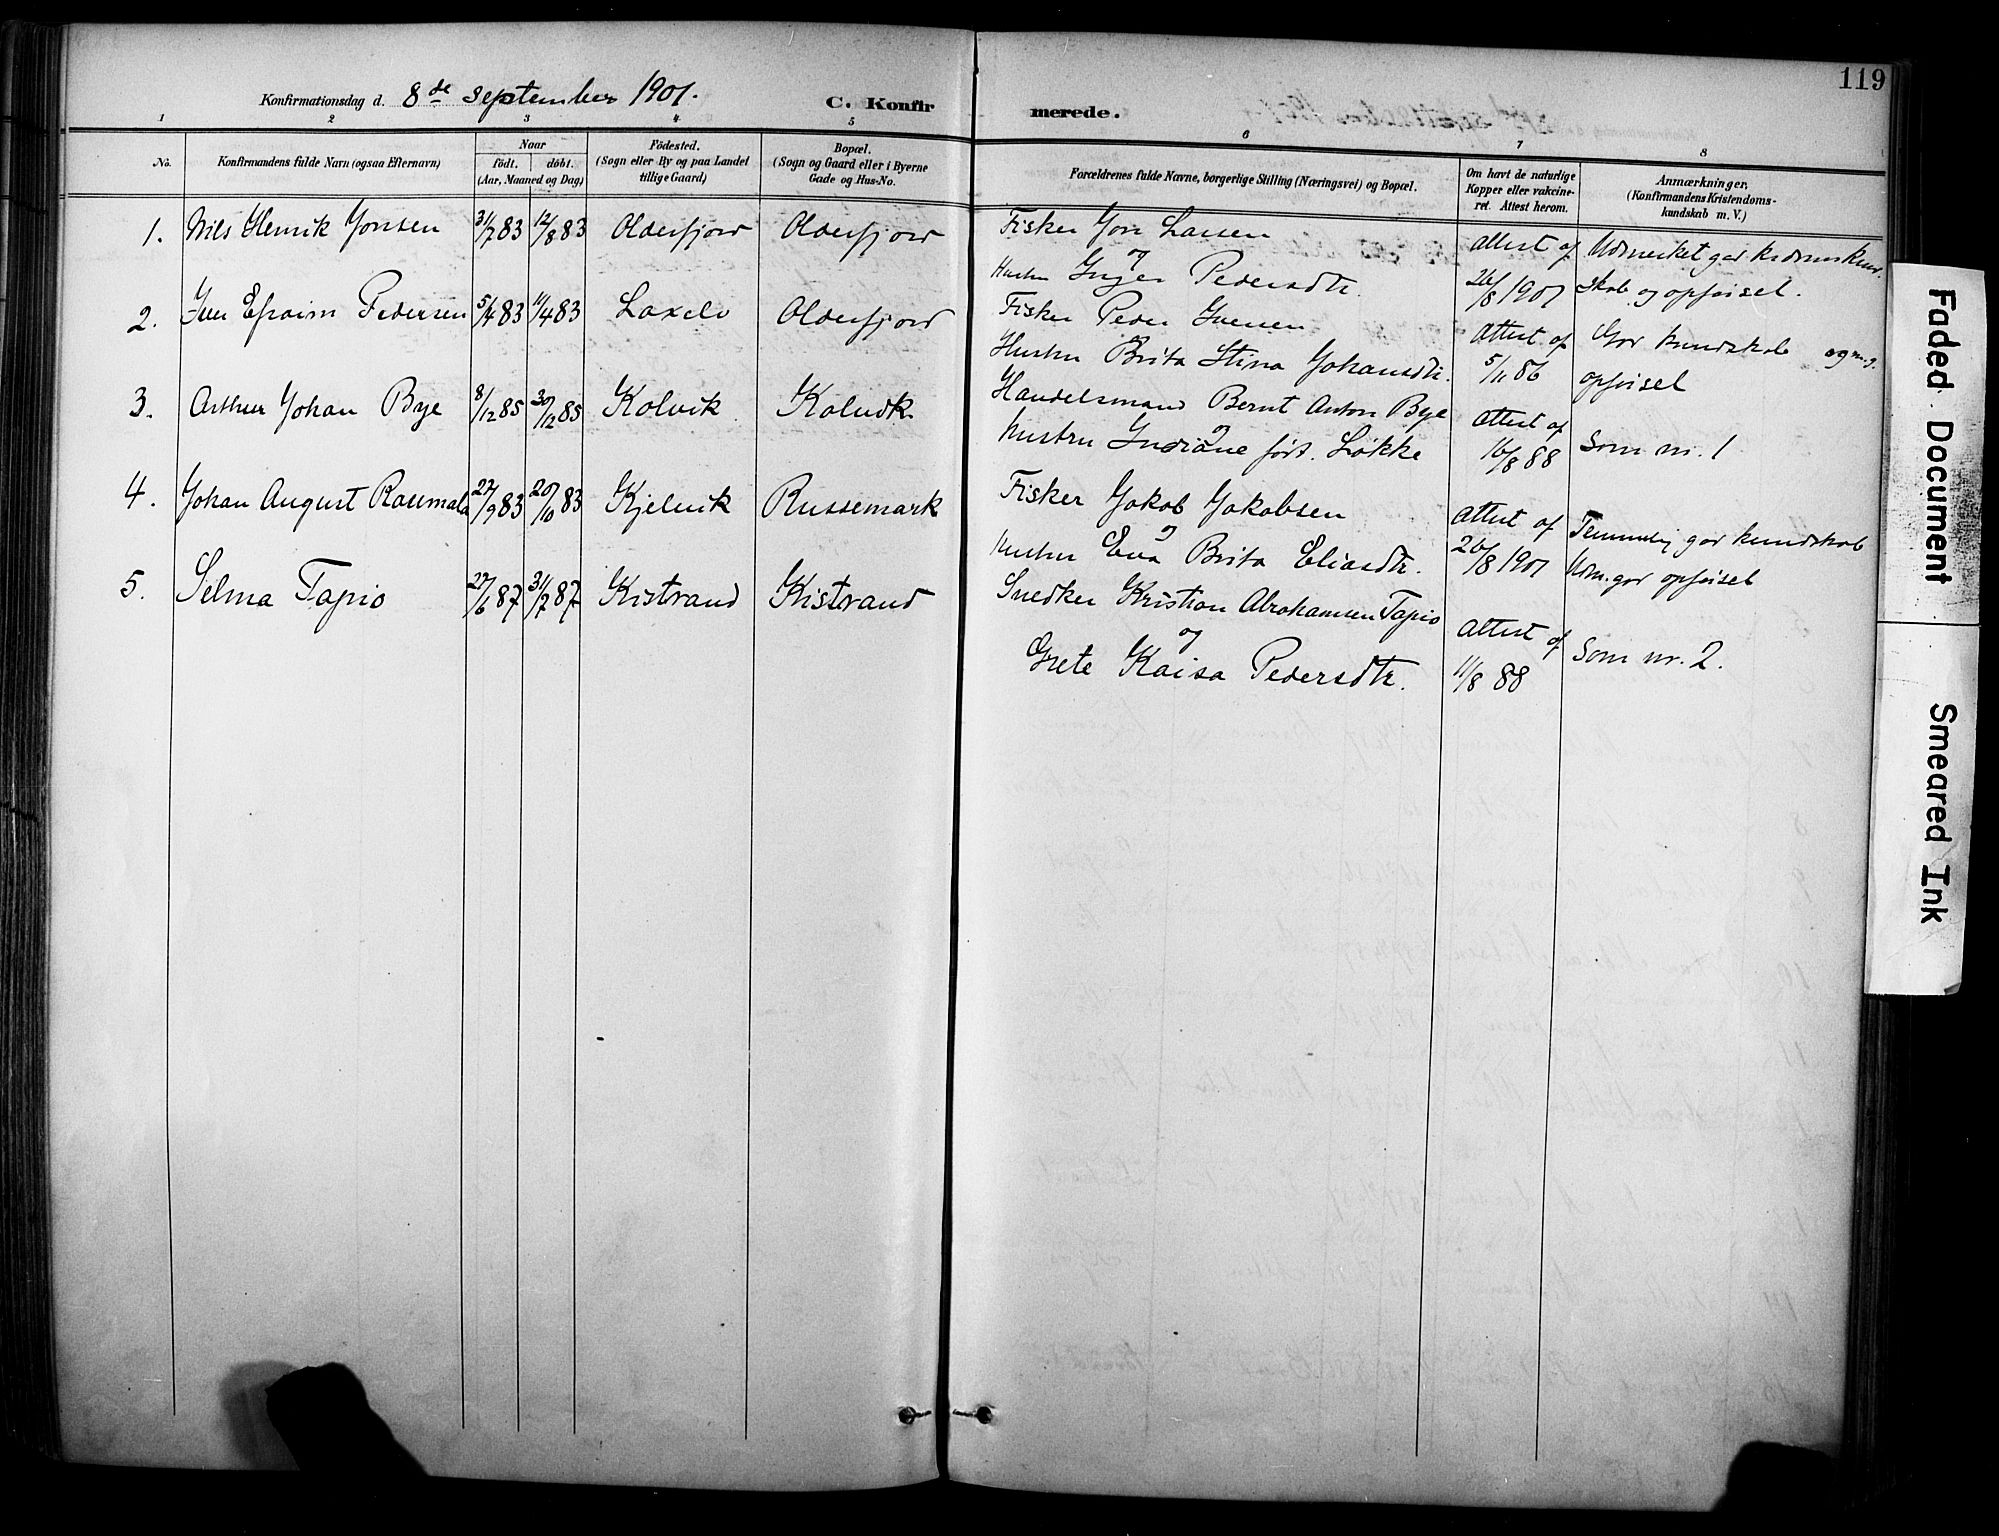 119
Konfirmationsdag d. 8de september 1901. C. Konfirmerede.
1 2 3 4 5 6 7 8
No. Konfirmandens fulde Navn (ogsaa Efternavn) Naar födt. döbt. (Aar, Maaned og Dag) Födested. (Sogn eller By og paa Landet tillige Gaard) Bopæl. (Sogn og Gaard eller i Byerne Gade og Hus-No. Forældrenes fulde Navne, borgerlige Stilling (Næringsvei) og Bopæl. Om havt de naturlige Kopper eller vakcineret. Attest herom. Anmærkninger, (Konfirmandens Kristendomskundskab m. V.)
1. Nils Henrik Jonsen 31/7 83 12/8 83 Olderfjord Olderfjord Fisker Jon Larsen
og
Hustru Inger Pedersdtr. attest af 26/8 1901 Udmerket god kundskab og opførsel.
2. Iver Efraim Pedersen 5/4 83 11/4 83 Laxelv Olderfjord Fisker Peder Iversen
og
Hustru Brita Stina Johansdtr. attest af 5/11 86 God kundskab og m. g. opførsel
3. Arthur Johan Bye 8/12 85 30/12 85 Kolvik Kolvik Handelsmand Bernt Anton Bye
og
hustru Indiane født Løkke attest af 16/8 88 Som nr. 1
4. Johan August 27/9 83 20/10 83 Kjelvik Russemark Fisker Jakob Jakobsen
og
hustru Eva Brita Eliasdtr. attest af 26/8 1901 Temmelig god kundskab Udm. god opførsel
5. Selma Tapio 27/6 87 31/7 87 Kistrand Kistrand Snedker Kristian Abrahamsen Tapio
og
Grete Kaisa Pedersdtr. attest af 11/8 88 Som nr. 2.
Faded Document
Smeared Ink